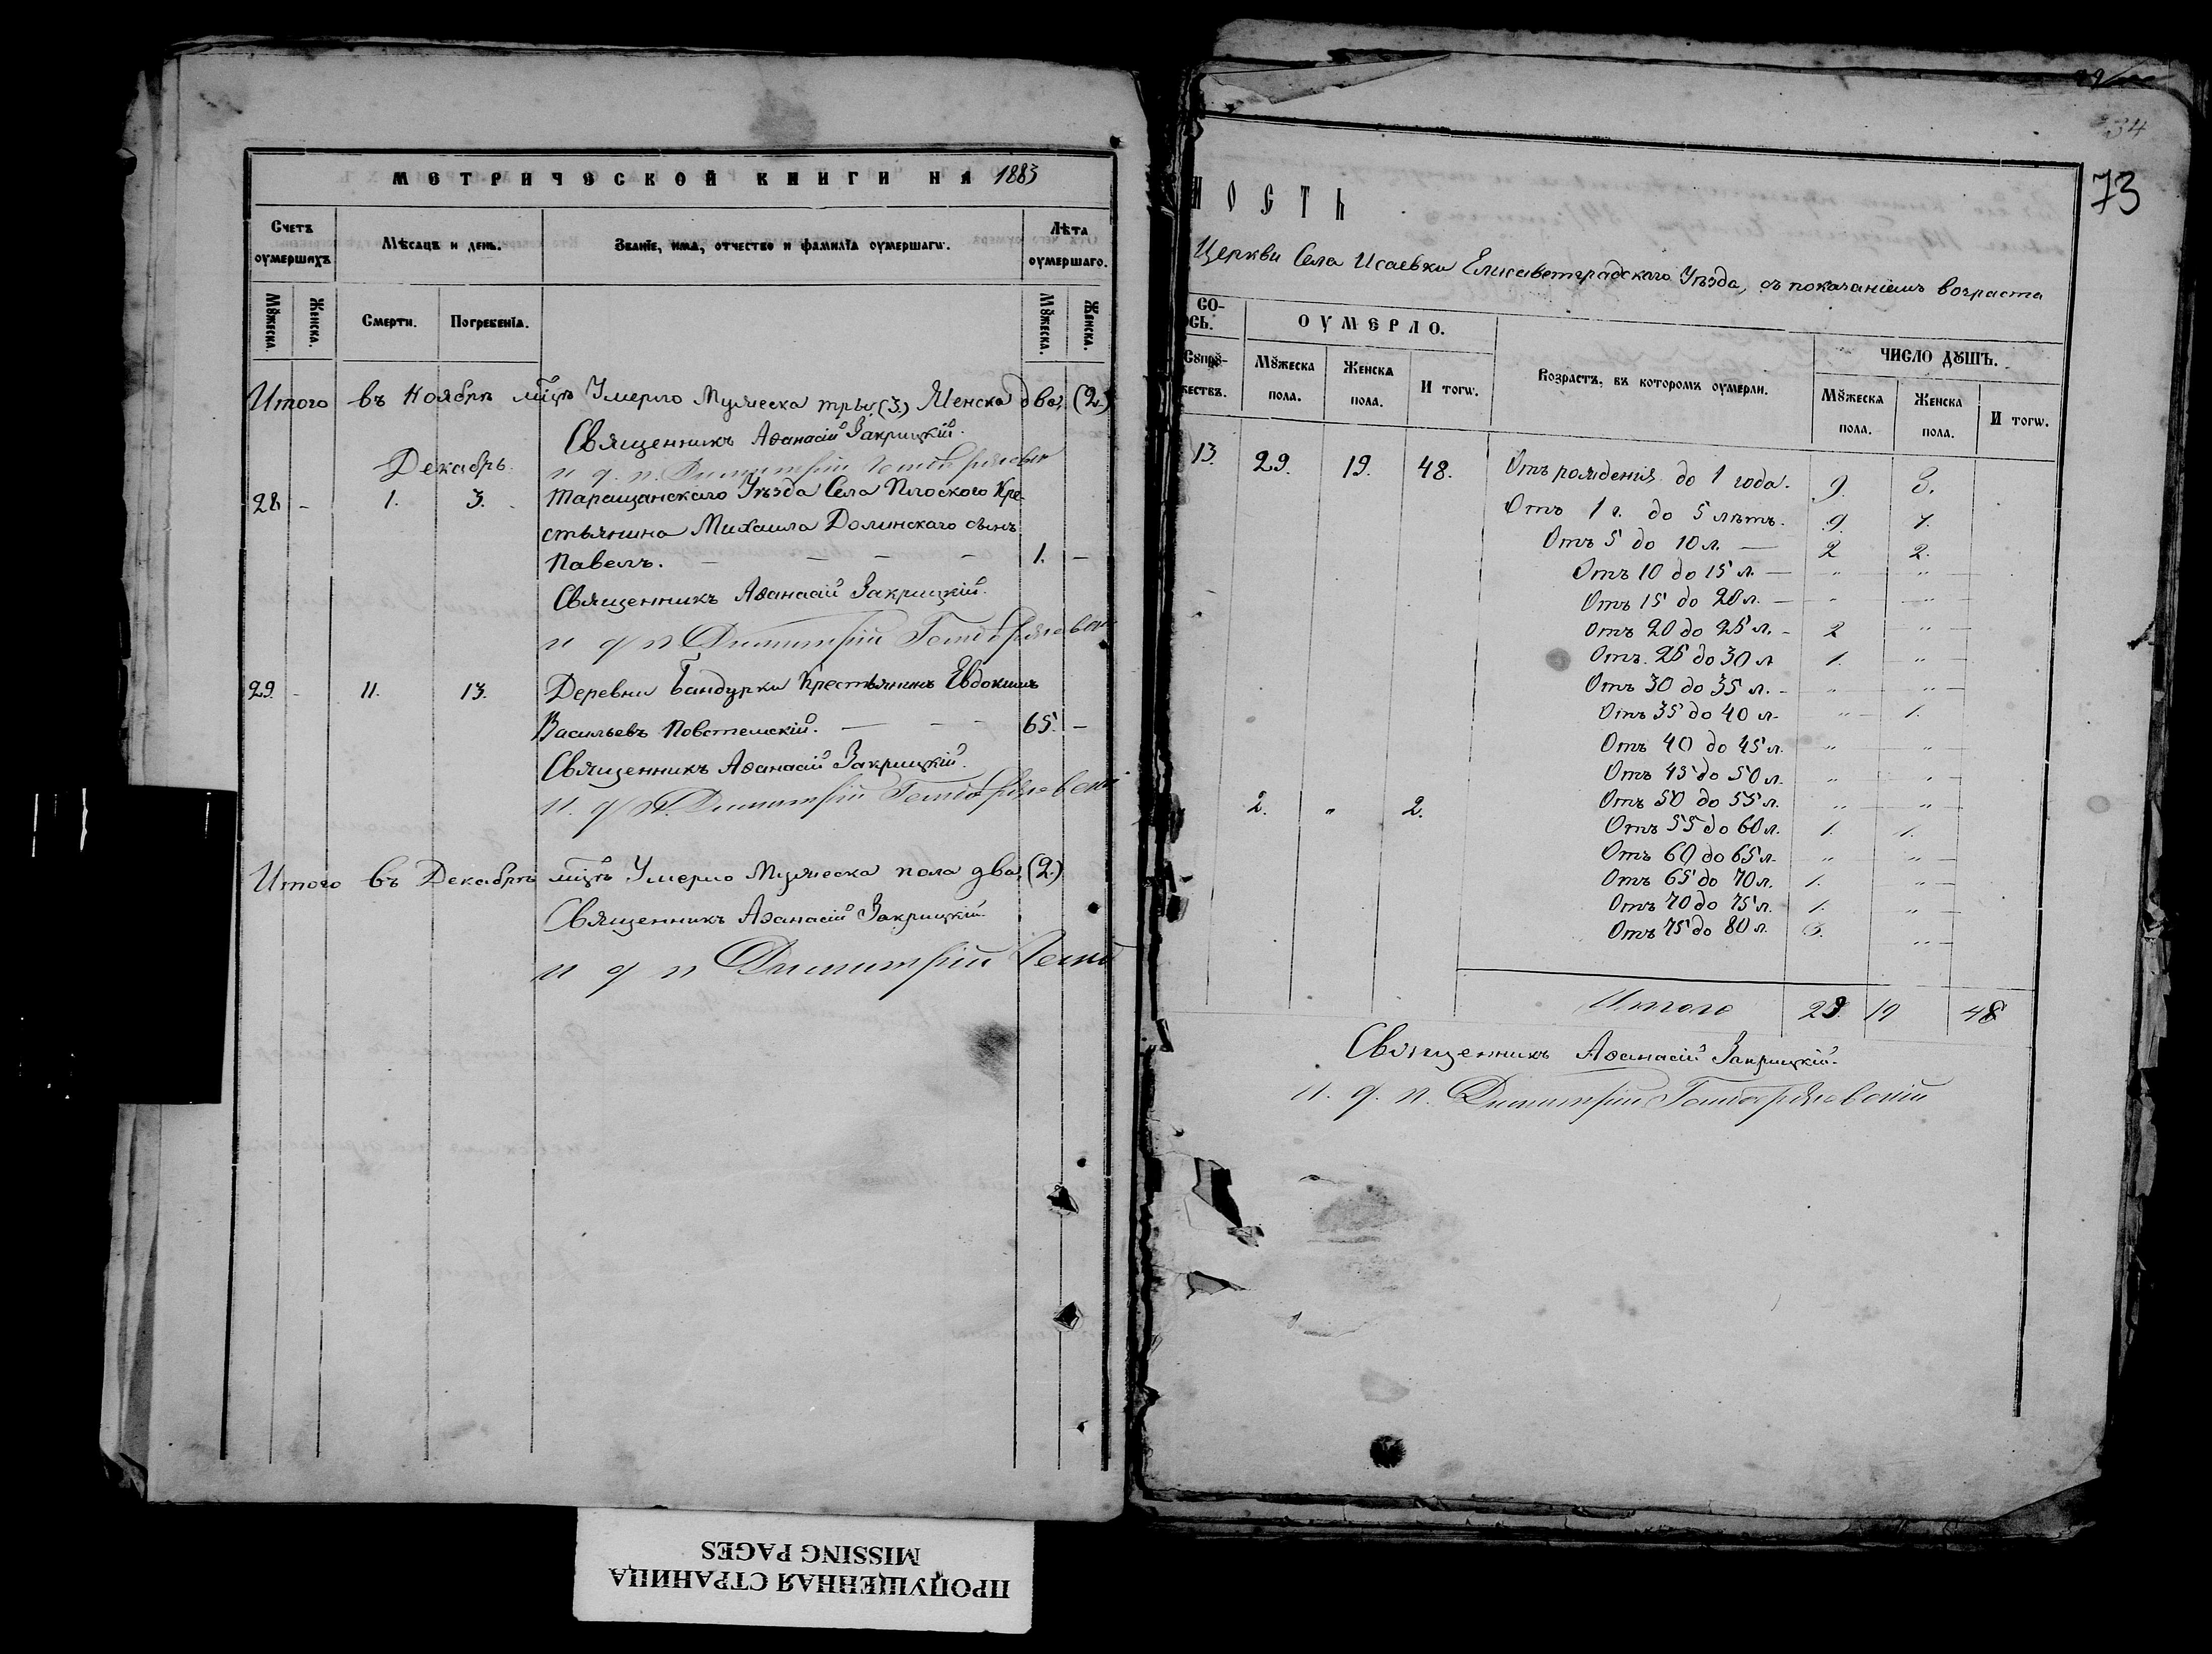 МЕТРИЧЕСКОЙ КНИГИ НА 1883
Счетъ оумершихъ
Мѣсяцъ и день.
Званїе, имѧ, отчество и фамилїѧ оумершагѡ.
Лѣта оумершаго.
Мꙋжеска.
Женска.
Смерти.
Погребенїѧ.
Мꙋжеска.
Женска.
Итого въ Ноябрѣ мцѣ Умерло Мужеска три (3.) Женска два, (2.)
Священникъ Аѳанасій Закрицкій.
и д. п. Димитрій
Декабрь.
28 - 1. 3. Таращанскаго Уѣзда Села Плоского Кре-
стьянина Михаила Долинскаго сынъ
Павелъ. — — — — 1. —
Священникъ Аѳанасій Закрицкій.
и д п Димитрій
29. - 11. 13. Деревни Бандурки Крестьянинъ Евдокимъ
Васильевъ — - - 65. —
Священникъ Аѳанасій Закрицкій.
И. д. п. Димитрій
Итого въ Декабрѣ мцѣ Умерло Мужеска пола два, (2.)
Священникъ Аѳанасій Закрицкій.
и д п Димитрій
ПРОПУЩЕННАЯ СТРАНИЦА
MISSING PAGES
34
73
НОСТЬ
Церкви Села Исаевки Елисаветградскаго Уѣзда, съ показаніемъ возраста
СО-
ОСЬ.
ОУМЕРЛО.
Возрастъ, въ которомъ оумерли.
ЧИСЛО ДꙋШЪ.
Сꙋпрꙋ-
жествъ.
Мꙋжеска пола.
Женска пола.
И тогѡ.
Мꙋжеска пола.
Женска пола.
И тогѡ.
13. 29. 19. 48. Отъ рожденія до 1 года. 9. 8.
Отъ 1 г. до 5 лѣтъ. 9. 7.
Отъ 5 до 10 л. — 2 2.
Отъ 10 до 15 л. — " "
Отъ 15 до 20 л. — " "
Отъ 20 до 25 л. - 2 "
Отъ 25 до 30 л. 1. "
Отъ 30 до 35 л. - " "
Отъ 35 до 40 л. " 1.
Отъ 40 до 45 л. " "
Отъ 45 до 50 л. " "
2. " 2. Отъ 50 до 55 л. " "
Отъ 55 до 60 л. 1. 1.
Отъ 60 до 65 л. " "
Отъ 65 до 70 л. 1. "
Отъ 70 до 75 л. 1. "
Отъ 75 до 80 л. "
Итого 29. 19 48
Священникъ Аѳанасій Закрицкій.
И. д. п. Димитрій